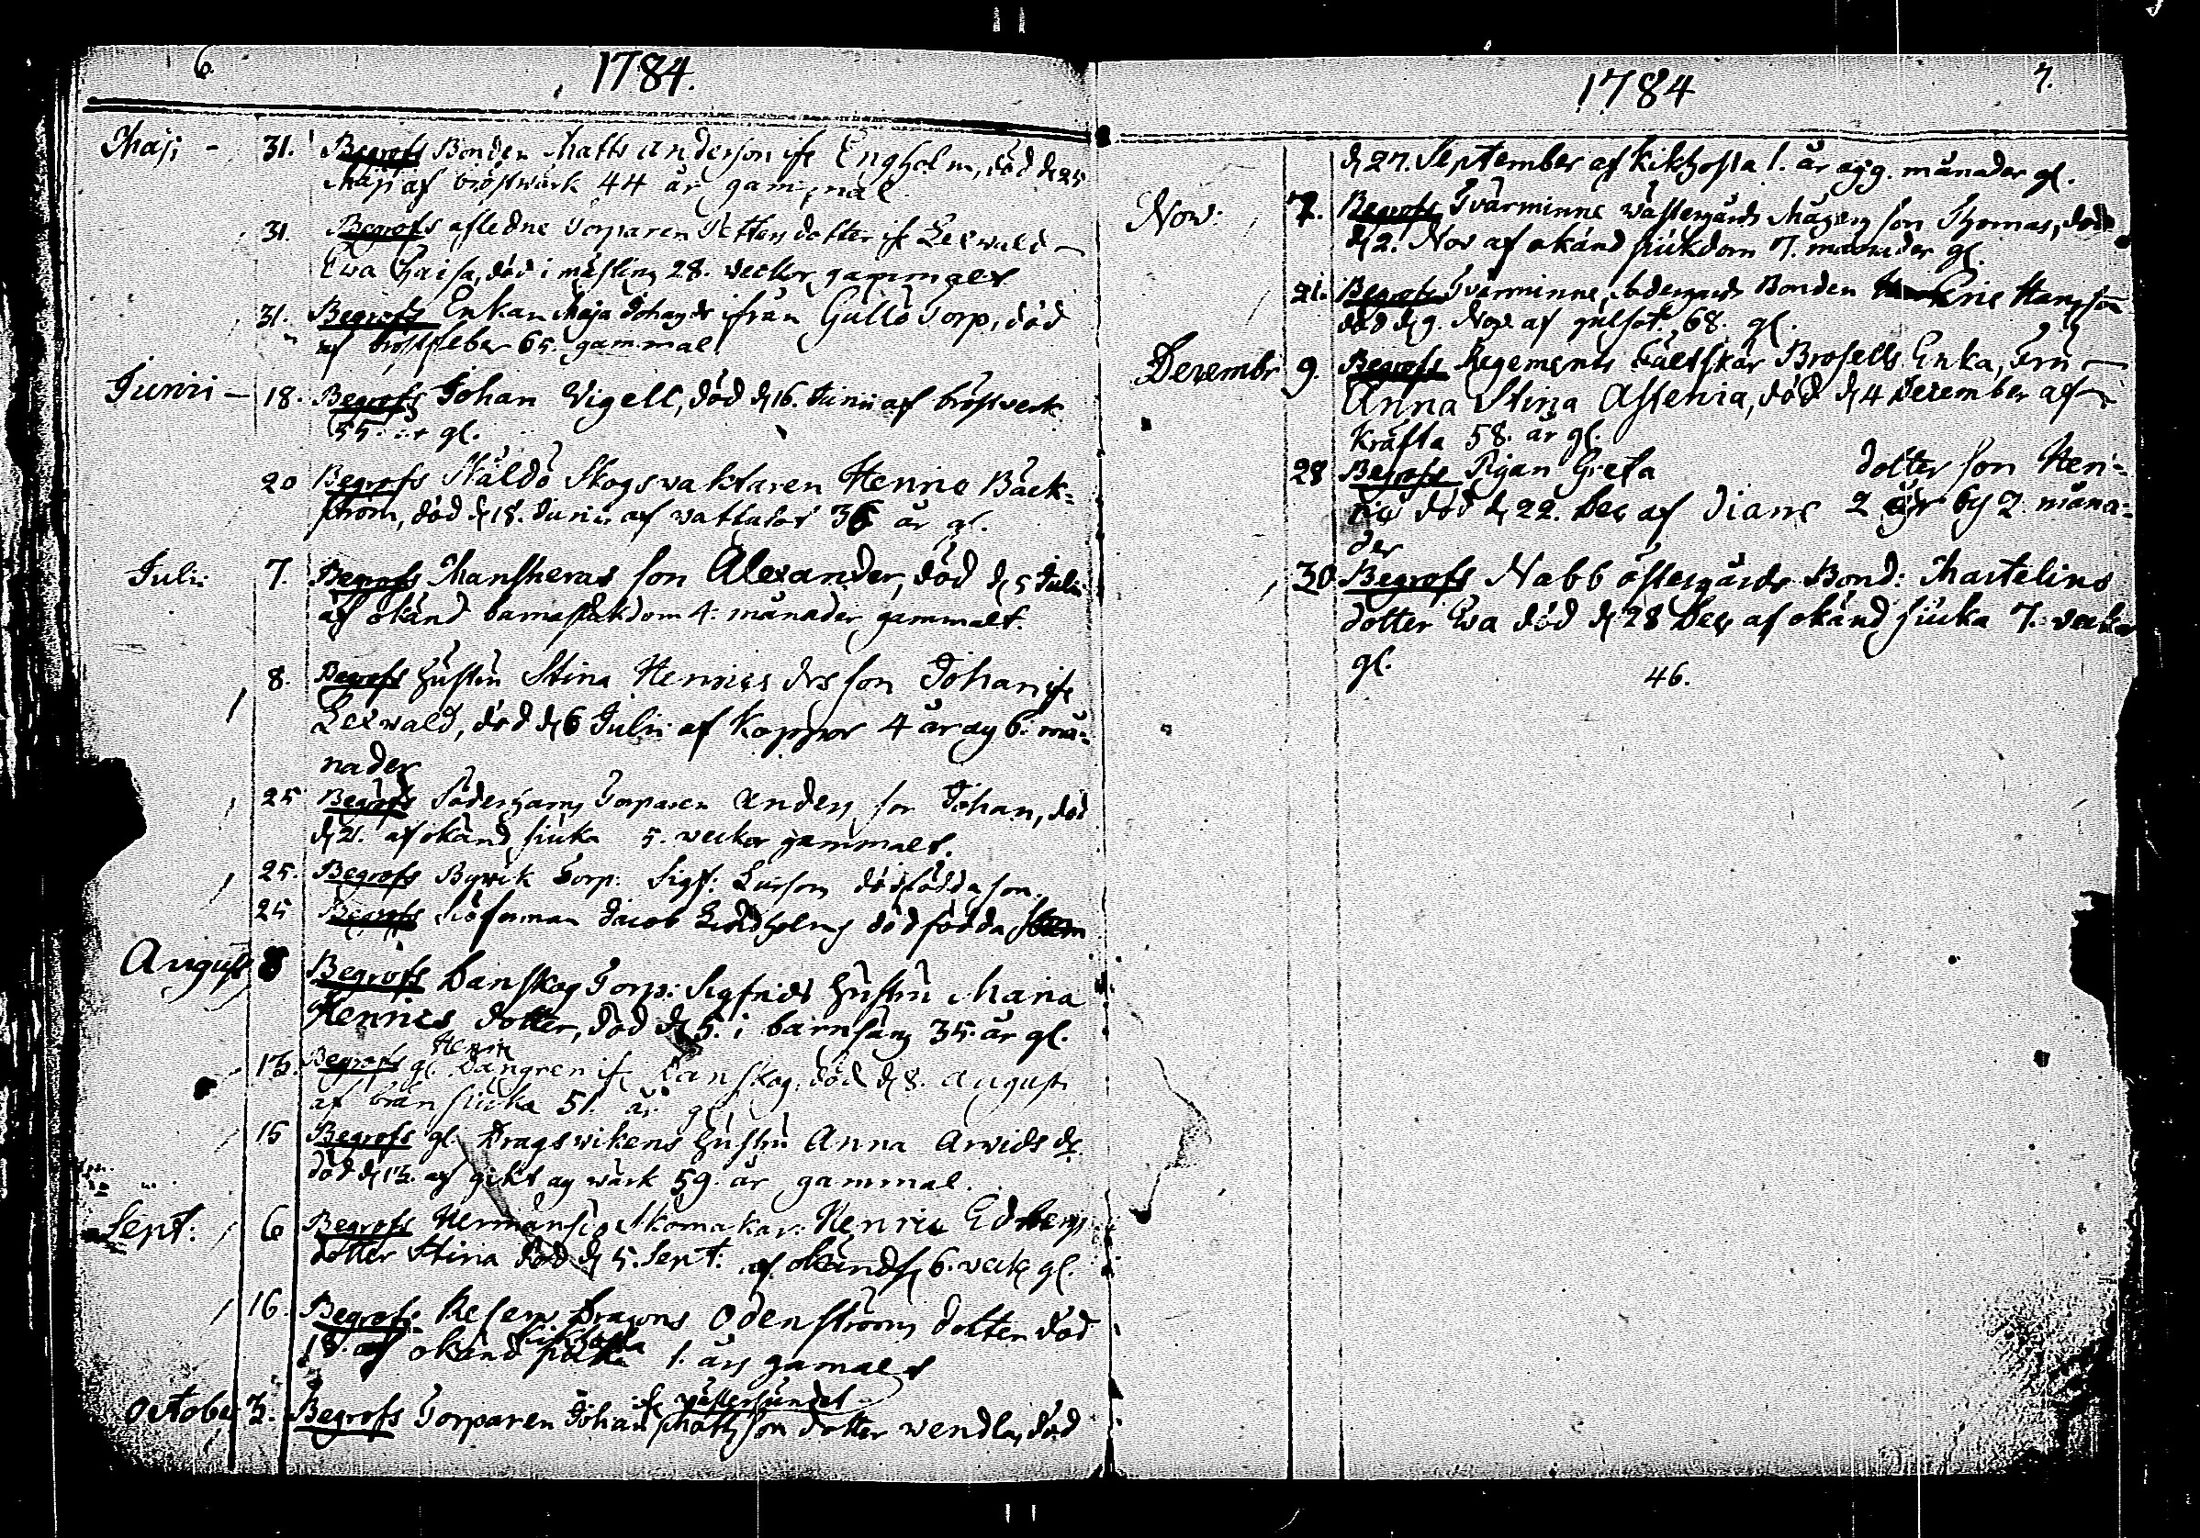 6.
1784.
Maji - 31. Begrofs Bonden Matts Anderson ifr Engholm, död d 25
Maji af bröstwärk 44 år gammal.
31. Begrofs afledne Torparen Petters dotter ifr Lexwald
Ewa Caisa, död i mäsling 28. veckor gammalt
31. Begrofs Enkan Maja Johans dr ifrån Gullö Torp, död
af bröstfeber 65. gammal.
Junii - 18. Begrofs Johan Vigell, död d 16. Junii af bröstverk
55. år gl.
20 Begrofs Skåldö Skogswaktaren Henric Bäck-
ström, död d 18. Junii af wattusot 36 år gl.
Julii 7. Begrofs Mansheras son Alexander, död d 5 Julii
af okänd barnasiukdom 4. månader gammalt.
8. Begrofs hustru Stina Henrics drs son Johan ifr
Lexwald, död d 6 Julii af Koppor 4 år ag 6. må-
nader
25 Begrofs Söderharns Torparen Anders son Johan, död
d 21. af okänd siuka 5. veckor gammalt.
25. Begrofs Bywik Torp: Sigf: Larsons dödfödda son.
25 Begrofs Jacob Lindholms dödfödda
August 8 Begrofs Danskog Torp: Sigfrids hustru Maria
Henrics dotter, död d 5. i barnsäng 35. år gl.
Henric
13. Begrofs gl. Dangren ifr Danskog, död d 8. Augusti
af brän siuka 51. år gl.
15 Begrofs gl. Dragswikens hustru Anna Arvids dr.
död d 13. af gikt ag wärk 59. år gammal.
Sept: 6 Begrofs Hermansö Skomakar: Henric Edbergs
dotter Stina död d 5. Sept: af okänd s 6. veck gl.
16. Begrofs Reserv Dragons Odenströms dotter död
kikhosta
18. af okänd 1. års gamalt
ifr västersundet
October 3. Begrofs Torparen Johan Mattsson dotter wendla, död
1784
7.
d 27. September af kikhosta 1. år ag 9. månader gl.
Nov: 7. Begrofs Tvärminne wästergårds Magens son Thomas, död
d 2. Nov af okänd siukdom 7. månader gl.
21. Begrofs Tvärminne, södergårds Bonden Eric Hansson
död d 9. Nov af gulsot. 68. gl.
Dezembr 9. Begrofs Regements fältskär Brosells Enka, fru
Anna Stina Assenia, död d 4 Dezember af
kräfta 58. år gl.
28 Begrofs Pigan Greta dotter son Hen-
ric död d 22. Dec af Diarre 2 år by 2. måna-
der
30 Begrofs Nabb östergårds Bond: Martelins
dotter Ewa död d 28 Dec af okänd siuka 7. veckor
gl.
46.